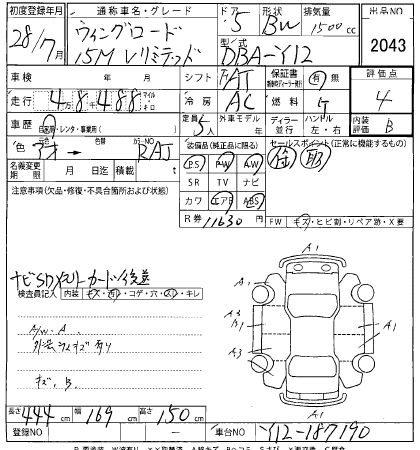 初度登録年月 通称車名・グレード ドア 形状 排気量 出品NO
28/7月 ウィングロード 5 BW 1500cc 2043
15M Vリミテッド 型式 DBA-Y12
車検 年 月 シフト FAT 保証書 有 無 評価点
走行 4万8千488 マイル キロ 冷房 AC 燃料 G 4
車歴 自家用・レンタ・事業用( ) 定員 5人 外車モデル 年 ディーラー 並行 ハンドル 左・右 内装評価 B
色 アオ → 色替 カラーNO RAJ 装備品(純正品に限る) セールスポイント(正常に機能するもの)
名義変更期限 月 日迄 積載 t PS PW AW
注意事項(欠品・修復・不具合箇所および状態) SR TV ナビ
カワ エアB ABS
R券 11630円 FW キズ・ヒビ割・リペア跡・X要
ナビSDメモリーカード後送
検査員記入 内装 キズ・汚・コゲ・穴・スレ・キレ
A/W. A
外装小キズ有り
キズ. B
A1
A1
A3
B1
A3
A1
A1
長さ 444cm 幅 169cm 高さ 150cm
登録NO ― 車台NO Y12-187190